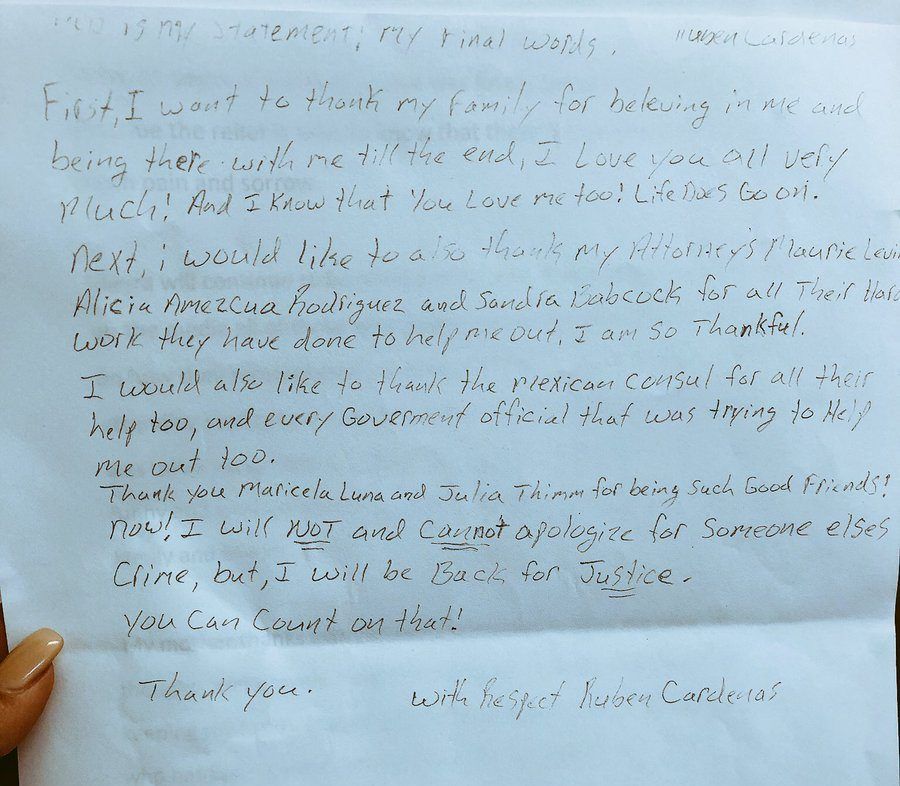 This is my statement; my final words. Ruben Cardenas
First, I want to thank my family for beleving in me and
being there with me till the end, I Love you all very
Much! And I Know that You Love me too! Life Does Go on.
Next, i would like to also thank my Attorney's Maurie Levin
Alicia Amezcua Rodriguez and Sandra Babcock for all Their Hard
work they have done to help me out. I am so Thankful.
I would also like to thank the Mexican consul for all their
help too, and every Goverment official that was trying to Help
me out too.
Thank you Maricela Luna and Julia Thimm for being such Good Friends!
Now! I will NOT and Cannot apologize for someone elses
Crime, but, I will be Back for Justice.
You Can Count on that!
Thank you. with Respect Ruben Cardenas